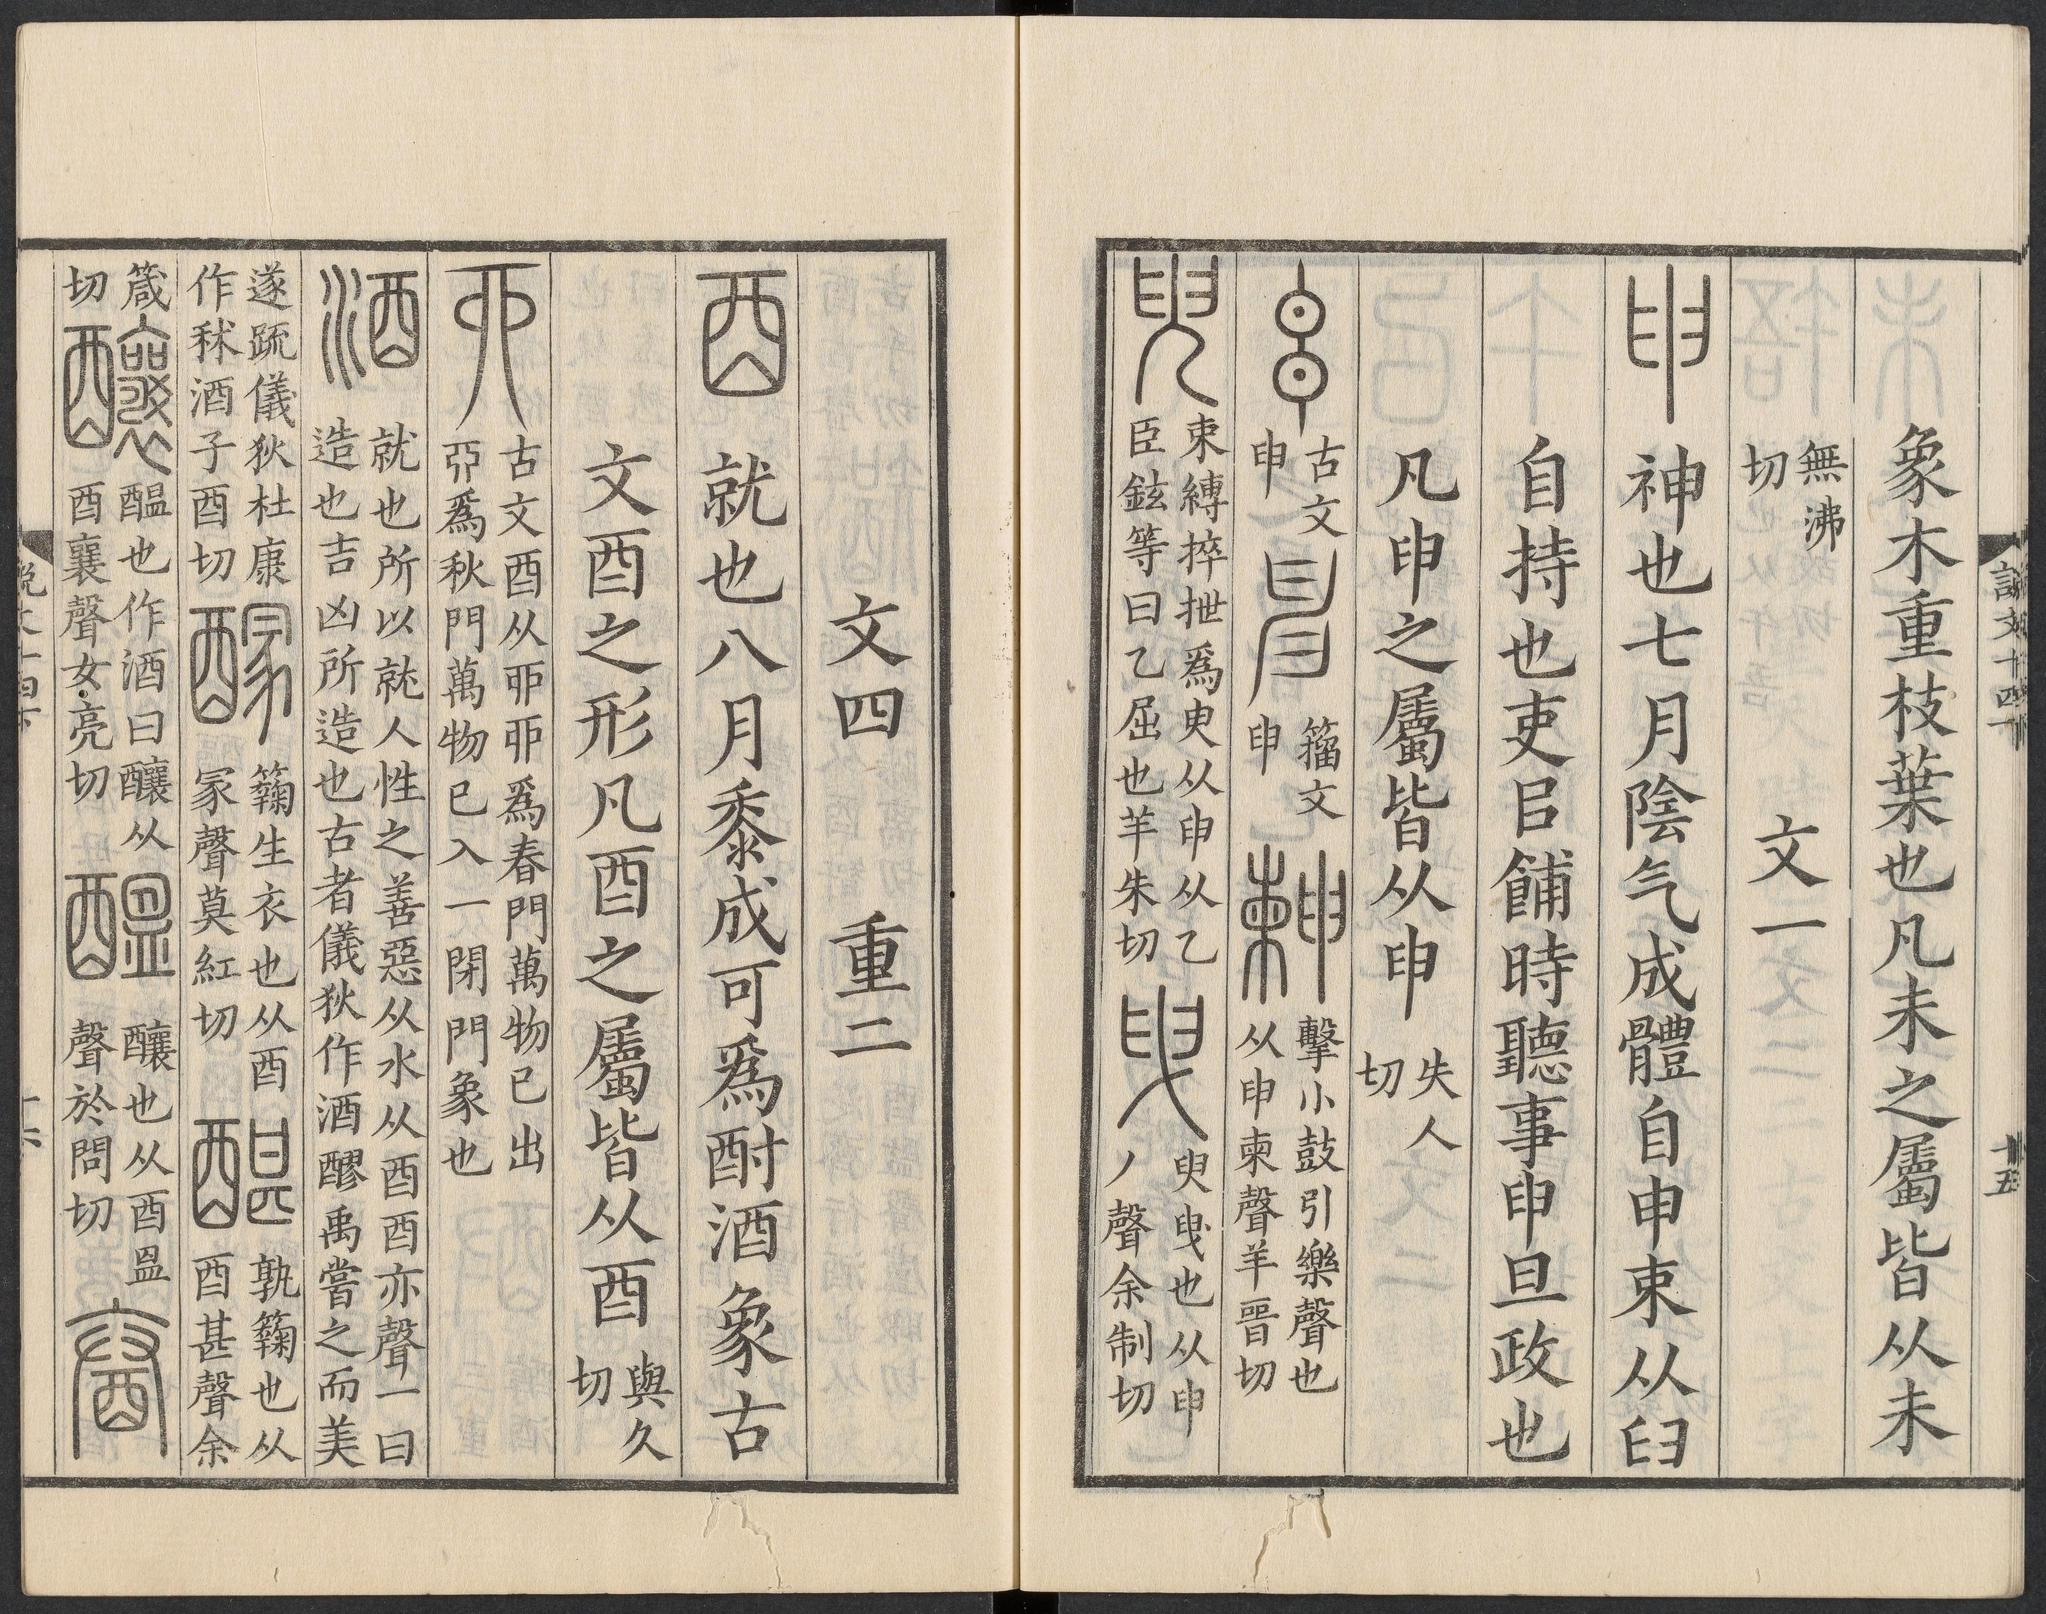 象木重枝葉也凡未之屬皆从未
無沸
切
文一
申 神也七月陰气成體自申束从𦥑
自持也吏㠯餔時聽事申旦政也
凡申之屬皆从申 失人
切
古文
申
籀文
申
𣌾 擊小鼓引樂聲也
从申柬聲羊晉切
臾 束縛捽抴爲臾从申从乙
臣鉉等曰乙屈也羊朱切
曳 臾曳也从申
丿聲余制切
說文十四下
十五
文四 重二
酉 就也八月黍成可爲酎酒象古
文酉之形凡酉之屬皆从酉 與久
切
丣 古文酉从丣丣爲春門萬物已出
丣爲秋門萬物已入一閉門象也
酒 就也所以就人性之善惡从水从酉酉亦聲一曰
造也吉凶所造也古者儀狄作酒醪禹嘗之而美
遂疏儀狄杜康
作秫酒子酉切
𨡭 籟生衣也从酉
冡聲莫紅切
𨡣 孰籟也从
酉甚聲余
箴
切
釀 醖也作酒曰釀从
酉襄聲女亮切
醖 釀也从酉𥁕
聲於問切
酓
說文十四下
十六